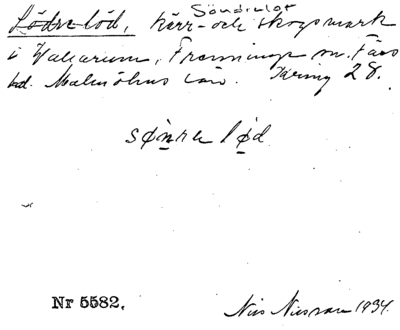 Söndrelöt
Lödre löd, kärr- och skogsmark
i Valiarum, Fränninge sn. Färs
hd. Malmöhus län. 28.
sønre lød
Nr 5582.
Nils Nilsson 1934.